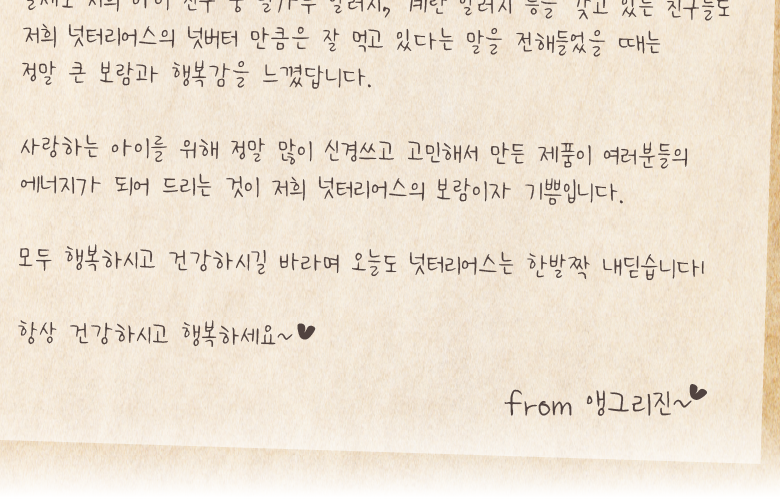 실제로 저희 아이 친구 중 밀가루 알러지, 계란 알러지 등을 갖고 있는 친구들도
저희 넛터리어스의 넛버터 만큼은 잘 먹고 있다는 말을 전해들었을 때는
정말 큰 보람과 행복감을 느꼈답니다.
사랑하는 아이를 위해 정말 많이 신경쓰고 고민해서 만든 제품이 여러분들의
에너지가 되어 드리는 것이 저희 넛터리어스의 보람이자 기쁨입니다.
모두 행복하시고 건강하시길 바라며 오늘도 넛터리어스는 한발짝 내딛습니다!
항상 건강하시고 행복하세요~♥
from 앵그리진~♥